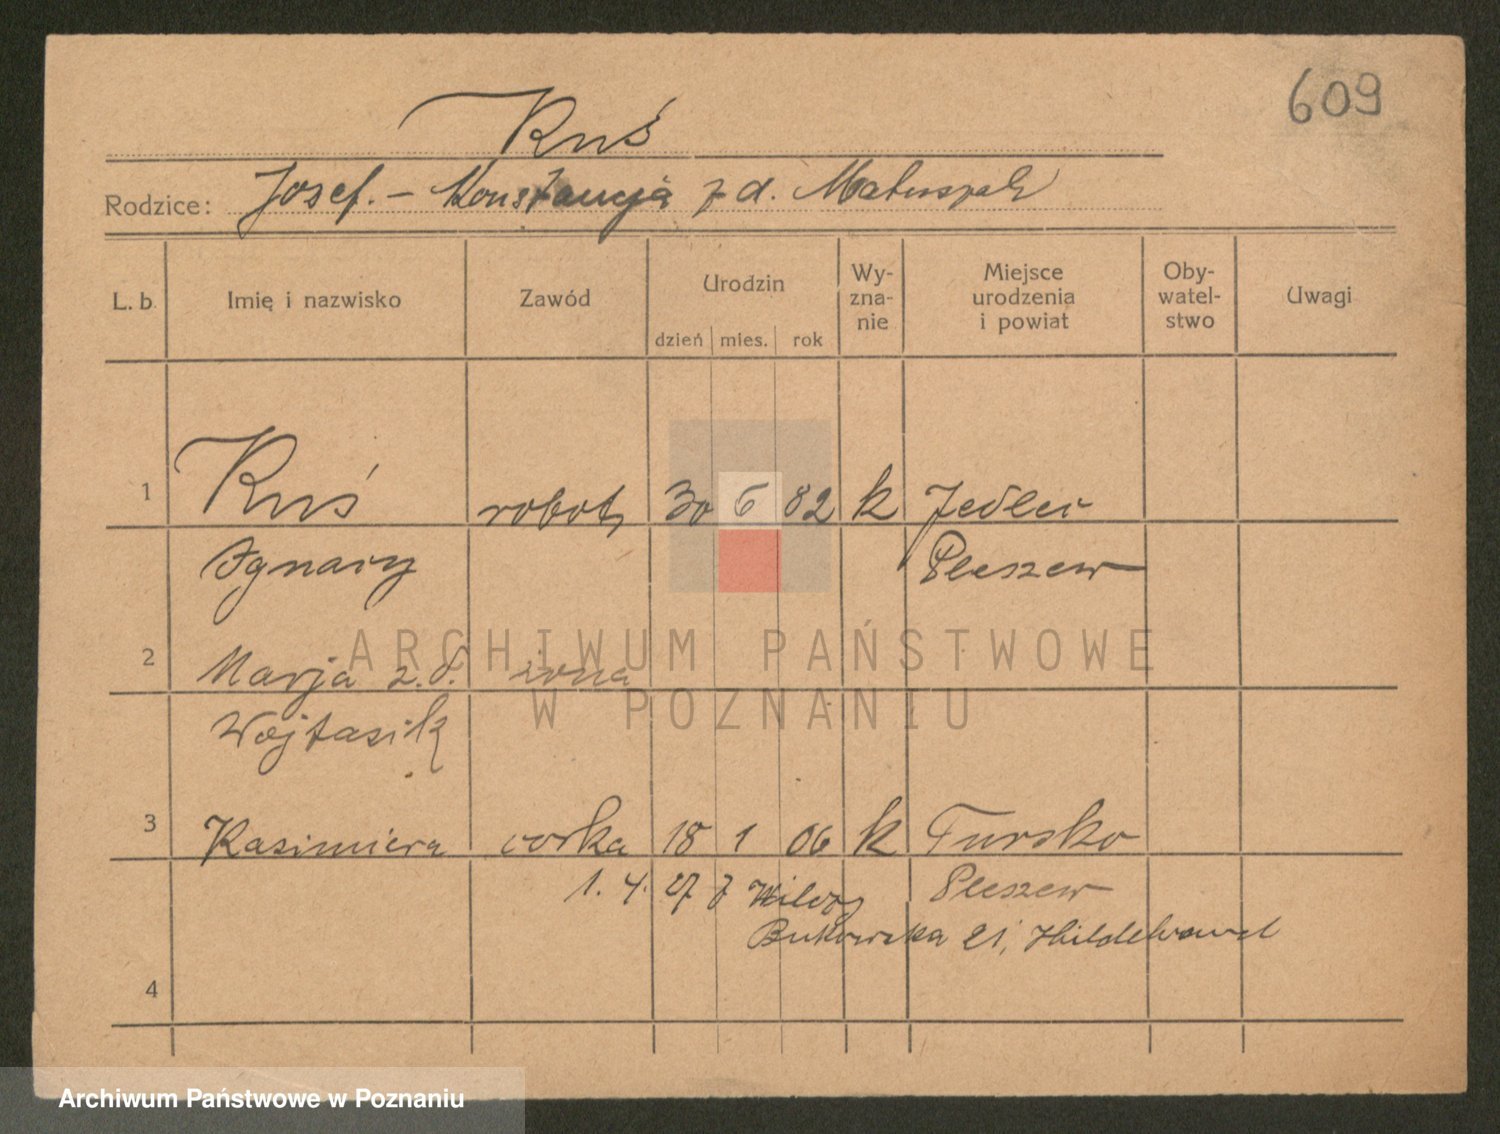 609
Ruś
Rodzice: Josef. – Konstancja z d. Matuszak
L. b. Imię i nazwisko Zawód Urodzin dzień mies. rok Wy-zna-nie Miejsce urodzenia i powiat Oby-watel-stwo Uwagi
1 Ruś robotn 30 6 82 k Jedlec
Ignacy Pleszew
2 Marja z.d. żona
Wojtasik
3 Kasimiera corka 18 1 06 k Tursko
1. 4. 27 z Pleszew
Bukowska 21,
4
ARCHIWUM PAŃSTWOWE
W POZNANIU
Archiwum Państwowe w Poznaniu